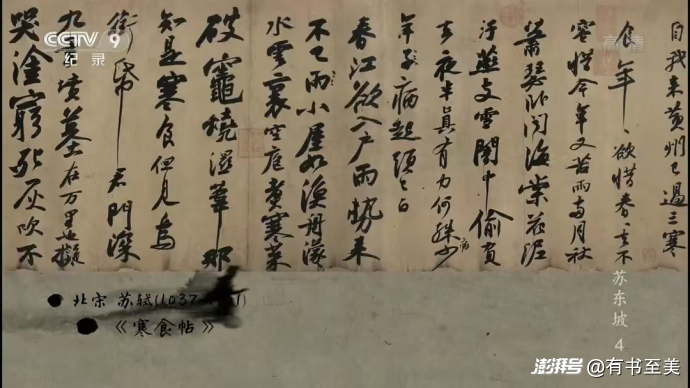 CCTV 9 高清
纪录
自我来黄州已過三寒
食年〻欲惜春〻去不
容惜今年又苦雨兩月秋
蕭瑟卧聞海棠花泥
汙燕支雪闇中偷負
去夜半真有力何殊病少
年子病起頭已白
春江欲入户雨势来
不已雨小屋如漁舟濛〻
水雲裏空庖煮寒菜
破竈燒濕葦那
知是寒食但見烏
銜帋君門深
九重墳墓在万里也擬
哭塗窮死灰吹不
苏东坡 4
北宋 苏轼(1037
《寒食帖》
澎湃号@有书至美